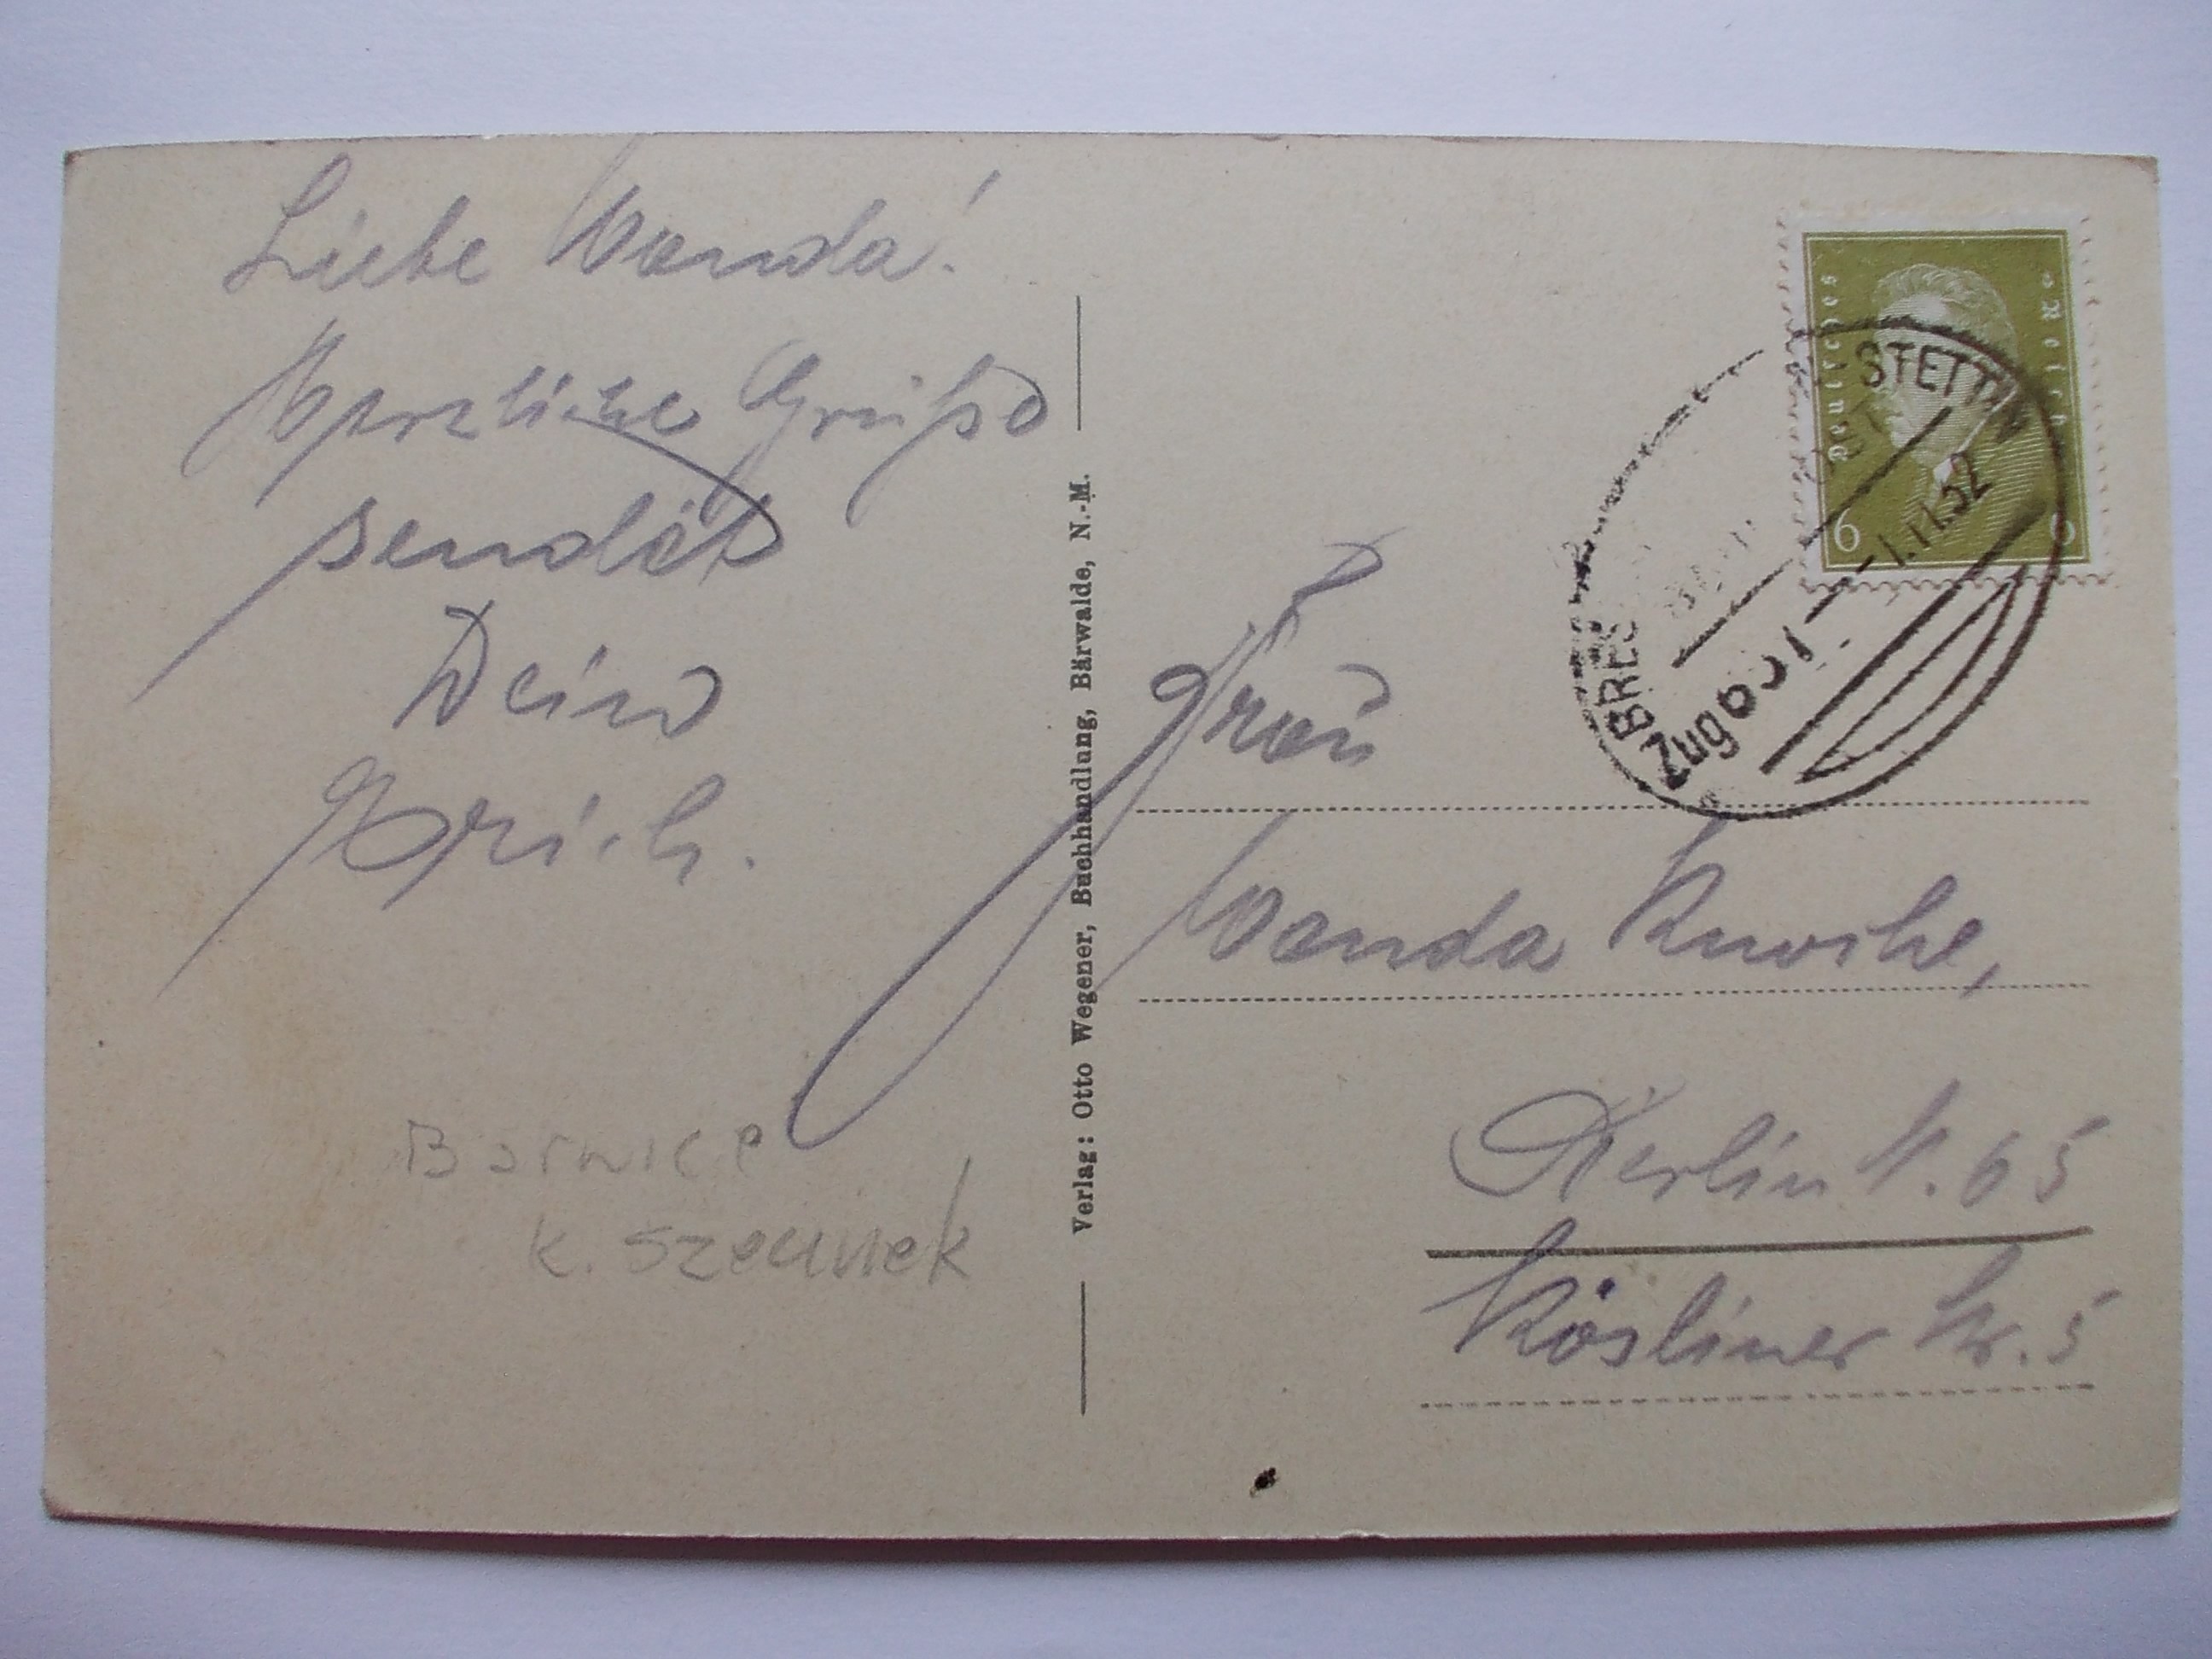 Liebe Wanda!
Herzliche Grüße
sendet
Dein
Erich.
Barwice
k. Szczecinek
Verlag: Otto Wegener, Buchhandlung, Bärwalde, N.-M.
Deutsches Reich
6 6
STETTIN
BRES
1.11.32
Zug
Frau
Wanda
Berlin N. 65
Kösliner Str. 5